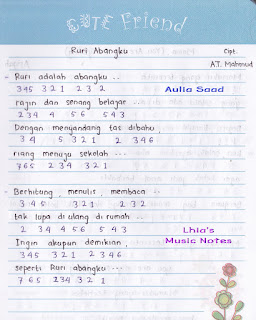 CUTE Friend
Ruri Abangku
Cipt.
A.T. Mahmud
Ruri adalah abangku ..
Aulia Saad
345 321 232
rajin dan senang belajar ..
234 4 56 543
Dengan menyandang tas dibahu,
34 5 321 2 346
riang menuju sekolah ---
765 234 321
Berhitung, menulis, membaca ..
345 321 232
tak lupa diulang dirumah ..
2 34 456 543
Lhia's
Music Notes
Ingin akupun demikian,
345 321 2346
seperti Ruri abangku ---
765 234 321